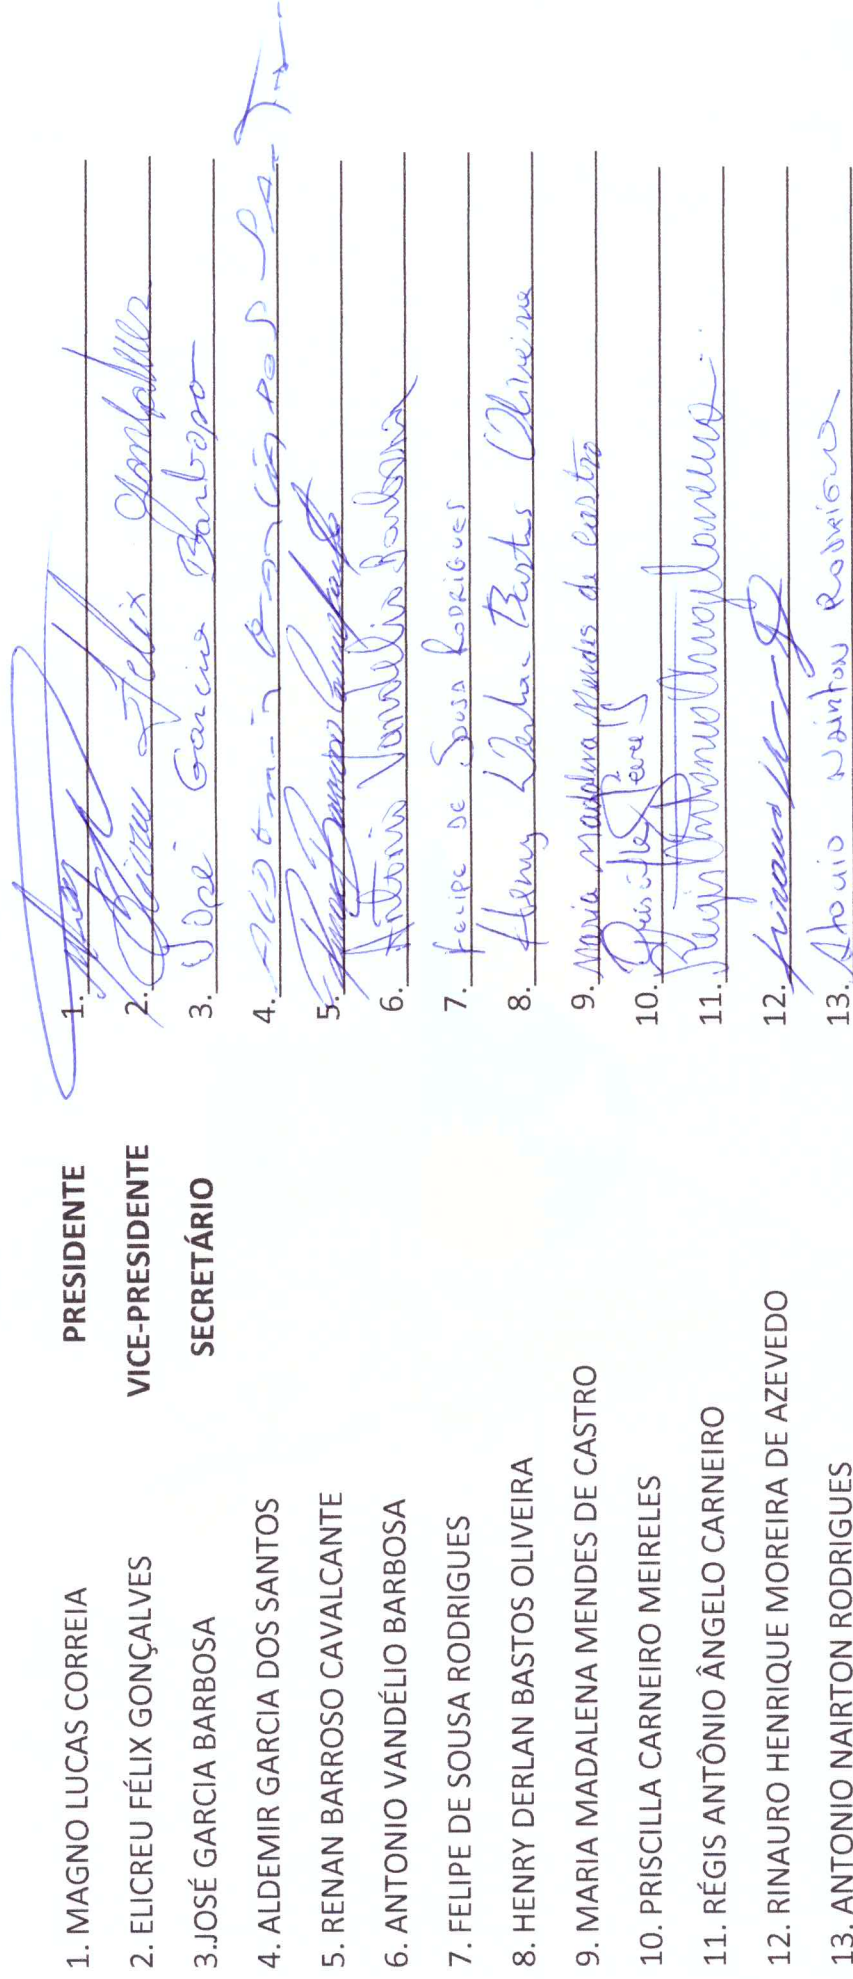 1. MAGNO LUCAS CORREIA PRESIDENTE 1.
2. ELICREU FÉLIX GONÇALVES VICE-PRESIDENTE 2. Felix Gonçalves
3.JOSÉ GARCIA BARBOSA SECRETÁRIO 3. José Garcia Barbosa
4. ALDEMIR GARCIA DOS SANTOS 4.
5. RENAN BARROSO CAVALCANTE 5. Renan Barroso Cavalcante
6. ANTONIO VANDÉLIO BARBOSA 6. Antonio Vandélio Barbosa
7. FELIPE DE SOUSA RODRIGUES 7. Felipe de Sousa Rodrigues
8. HENRY DERLAN BASTOS OLIVEIRA 8. Henry Derlan Bastos Oliveira
9. MARIA MADALENA MENDES DE CASTRO 9. Maria Madalena Mendes de Castro
10. PRISCILLA CARNEIRO MEIRELES 10.
11. RÉGIS ANTÔNIO ÂNGELO CARNEIRO 11.
12. RINAURO HENRIQUE MOREIRA DE AZEVEDO 12.
13. ANTONIO NAIRTON RODRIGUES 13. Nairton Rodrigues